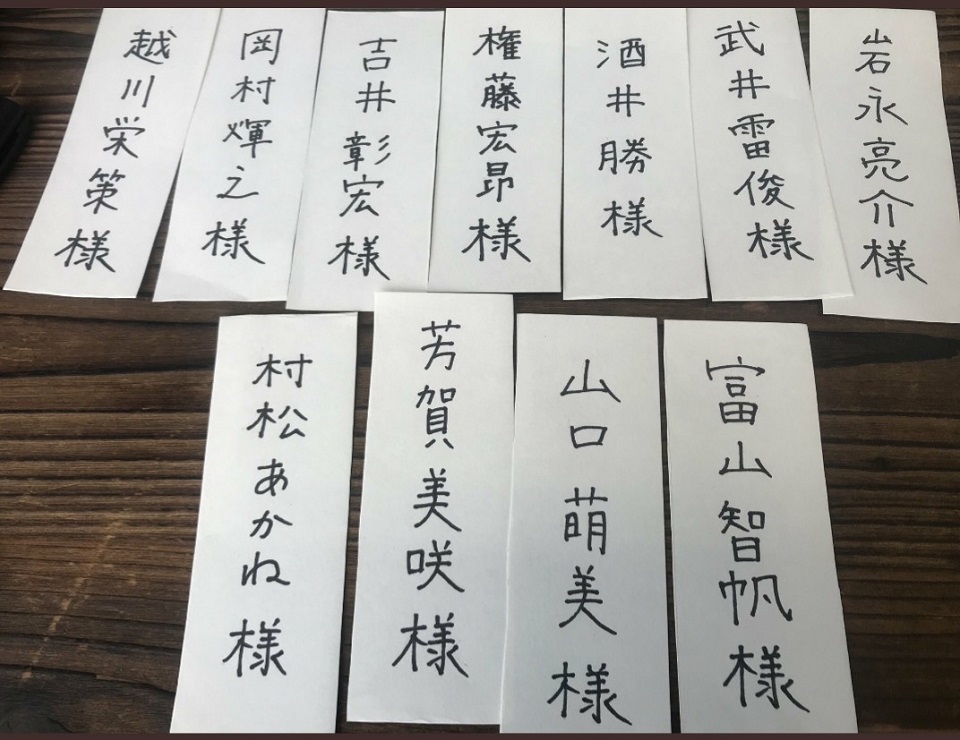 岩永亮介様
武井雷俊様
酒井勝様
権藤宏昴様
吉井彰宏様
岡村輝之様
越川栄策様
富山智帆様
山口萌美様
芳賀美咲様
村松あかね様